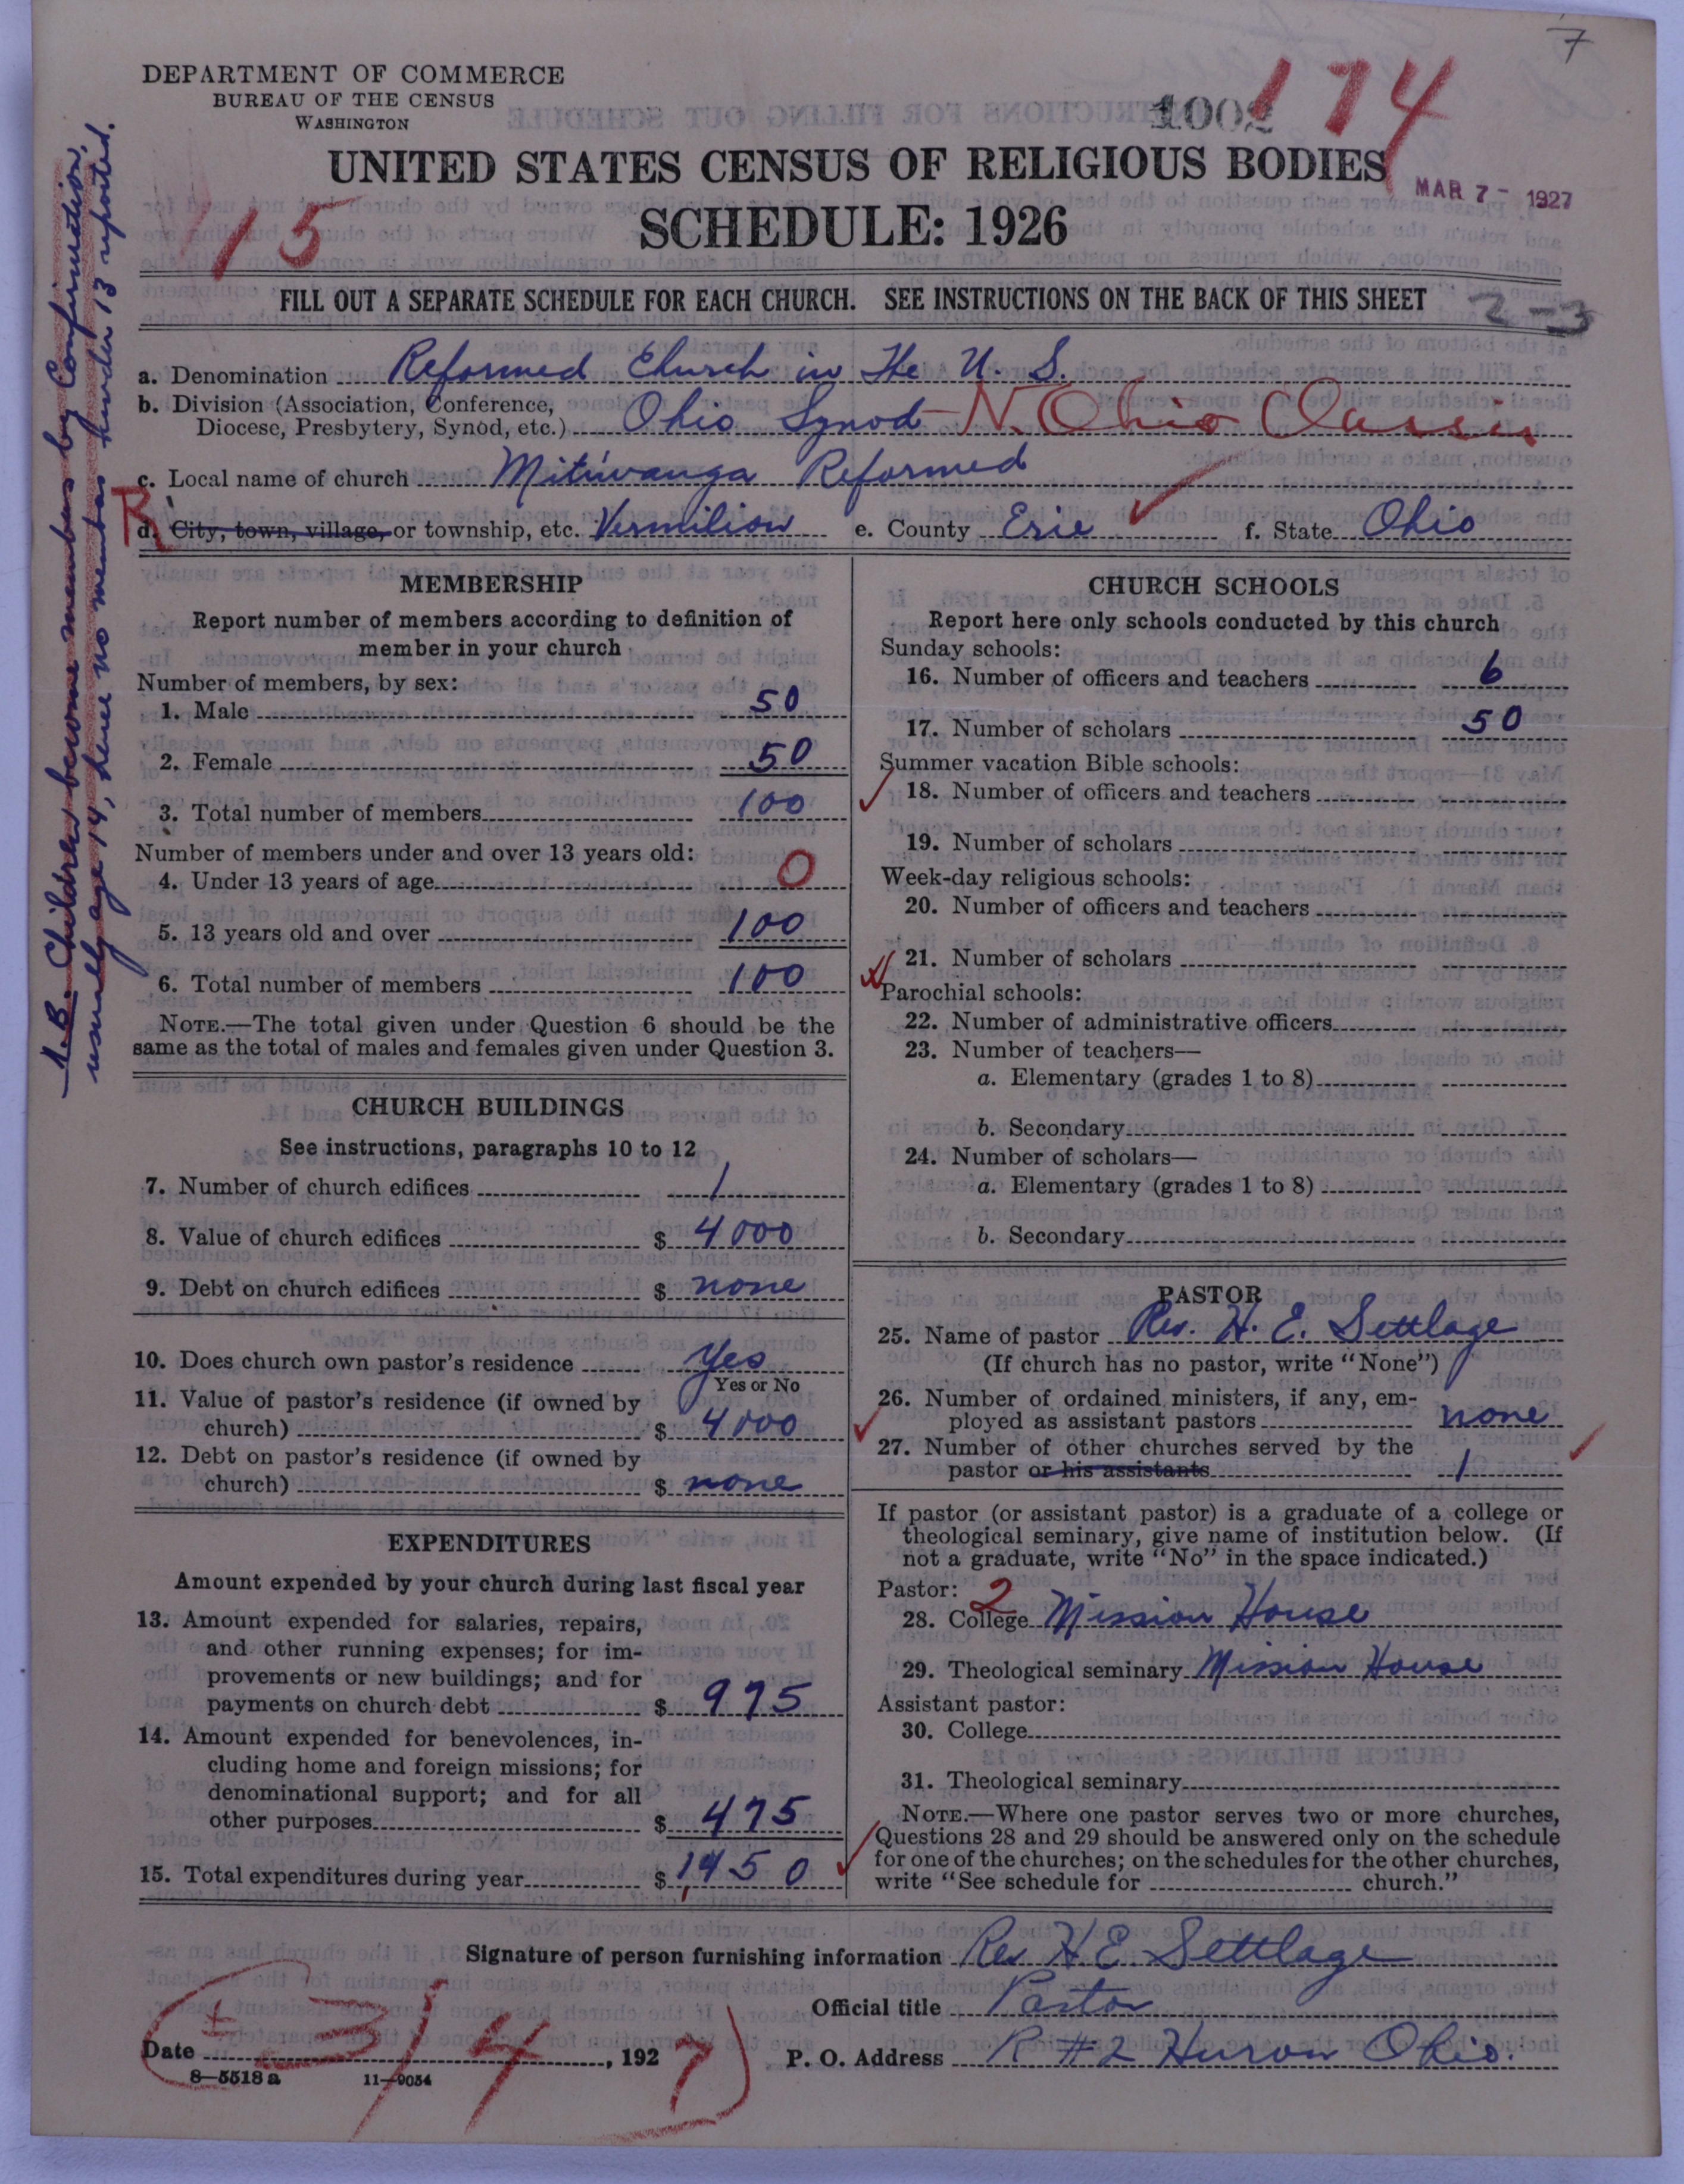 7
DEPARTMENT OF COMMERCE
BUREAU OF THE CENSUS
WASHINGTON
1002
174
UNITED STATES CENSUS OF RELIGIOUS BODIES
MAR 7 - 1927
15
SCHEDULE: 1926
FILL OUT A SEPARATE SCHEDULE FOR EACH CHURCH. SEE INSTRUCTIONS ON THE BACK OF THIS SHEET
2-3
N.B. Children become members by Confirmation,
usually age 14, hence no members under 13 reported.
a. Denomination Reformed Church in the U. S.
b. Division (Association, Conference,
Diocese, Presbytery, Synod, etc.) Ohio Synod - N. Ohio Classis
c. Local name of church Mitiwanga Reformed
R
d. City, town, village, or township, etc. Vermilion e. County Erie f. State Ohio
MEMBERSHIP
Report number of members according to definition of
member in your church
Number of members, by sex:
1. Male 50
2. Female 50
3. Total number of members 100
Number of members under and over 13 years old:
4. Under 13 years of age 0
5. 13 years old and over 100
6. Total number of members 100
NOTE.—The total given under Question 6 should be the
same as the total of males and females given under Question 3.
CHURCH BUILDINGS
See instructions, paragraphs 10 to 12
7. Number of church edifices 1
8. Value of church edifices $ 4000
9. Debt on church edifices $ none
10. Does church own pastor's residence Yes
Yes or No
11. Value of pastor's residence (if owned by
church) $ 4000
12. Debt on pastor's residence (if owned by
church) $ none
EXPENDITURES
Amount expended by your church during last fiscal year
13. Amount expended for salaries, repairs,
and other running expenses; for im-
provements or new buildings; and for
payments on church debt $ 975
14. Amount expended for benevolences, in-
cluding home and foreign missions; for
denominational support; and for all
other purposes $ 475
15. Total expenditures during year $ 1,450
CHURCH SCHOOLS
Report here only schools conducted by this church
Sunday schools:
16. Number of officers and teachers 6
17. Number of scholars 50
Summer vacation Bible schools:
18. Number of officers and teachers
19. Number of scholars
Week-day religious schools:
20. Number of officers and teachers
21. Number of scholars
Parochial schools:
22. Number of administrative officers
23. Number of teachers—
a. Elementary (grades 1 to 8)
b. Secondary
24. Number of scholars—
a. Elementary (grades 1 to 8)
b. Secondary
PASTOR
25. Name of pastor Rev. H. E. Settlage
(If church has no pastor, write "None")
26. Number of ordained ministers, if any, em-
ployed as assistant pastors none
27. Number of other churches served by the
pastor or his assistants 1
If pastor (or assistant pastor) is a graduate of a college or
theological seminary, give name of institution below. (If
not a graduate, write "No" in the space indicated.)
Pastor: 2
28. College Mission House
29. Theological seminary Mission House
Assistant pastor:
30. College
31. Theological seminary
NOTE.—Where one pastor serves two or more churches,
Questions 28 and 29 should be answered only on the schedule
for one of the churches; on the schedules for the other churches,
write "See schedule for church."
Signature of person furnishing information Rev H E. Settlage
Official title Pastor
Date 3/4, 1927
P. O. Address R #2 Huron Ohio.
8—5518 a 11—9054